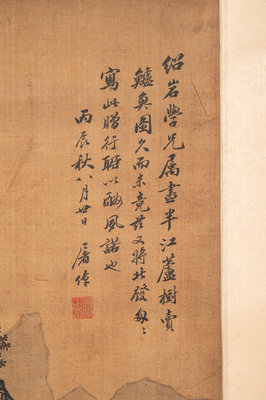 紹岩學兄属畫半江蘆樹賣
鱸魚圖久而未竟茲又將北發匆〻
寫此贈行聊以酬夙諾也
丙辰秋八月廿日 屠倬